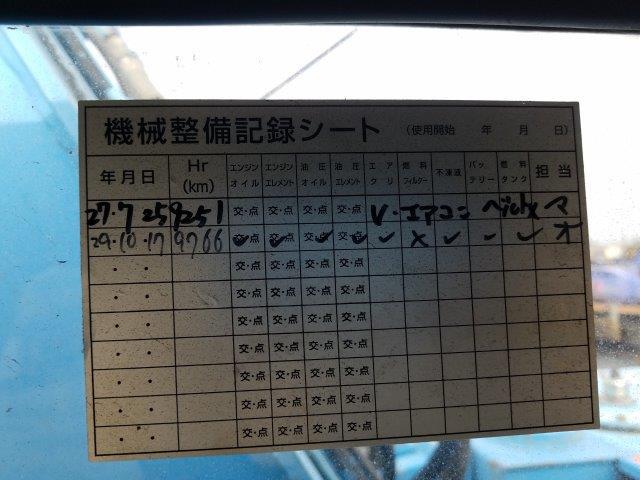 機械整備記録シート (使用開始 年 月 日)
年月日 Hr (km) エンジンオイル エンジンエレメント 油圧オイル 油圧エレメント エアクリ 燃料フィルター 不凍液 バッテリー 燃料タンク 担当
27・7 25 9251 交・点 交・点 交・点 交・点 V・エアコン マ
29・10・17 9766 交・点 交・点 交・点 交・点 ✓ × ✓ ✓ ✓ オ
・ ・ 交・点 交・点 交・点 交・点
・ ・ 交・点 交・点 交・点 交・点
・ ・ 交・点 交・点 交・点 交・点
・ ・ 交・点 交・点 交・点 交・点
・ ・ 交・点 交・点 交・点 交・点
・ ・ 交・点 交・点 交・点 交・点
・ ・ 交・点 交・点 交・点 交・点